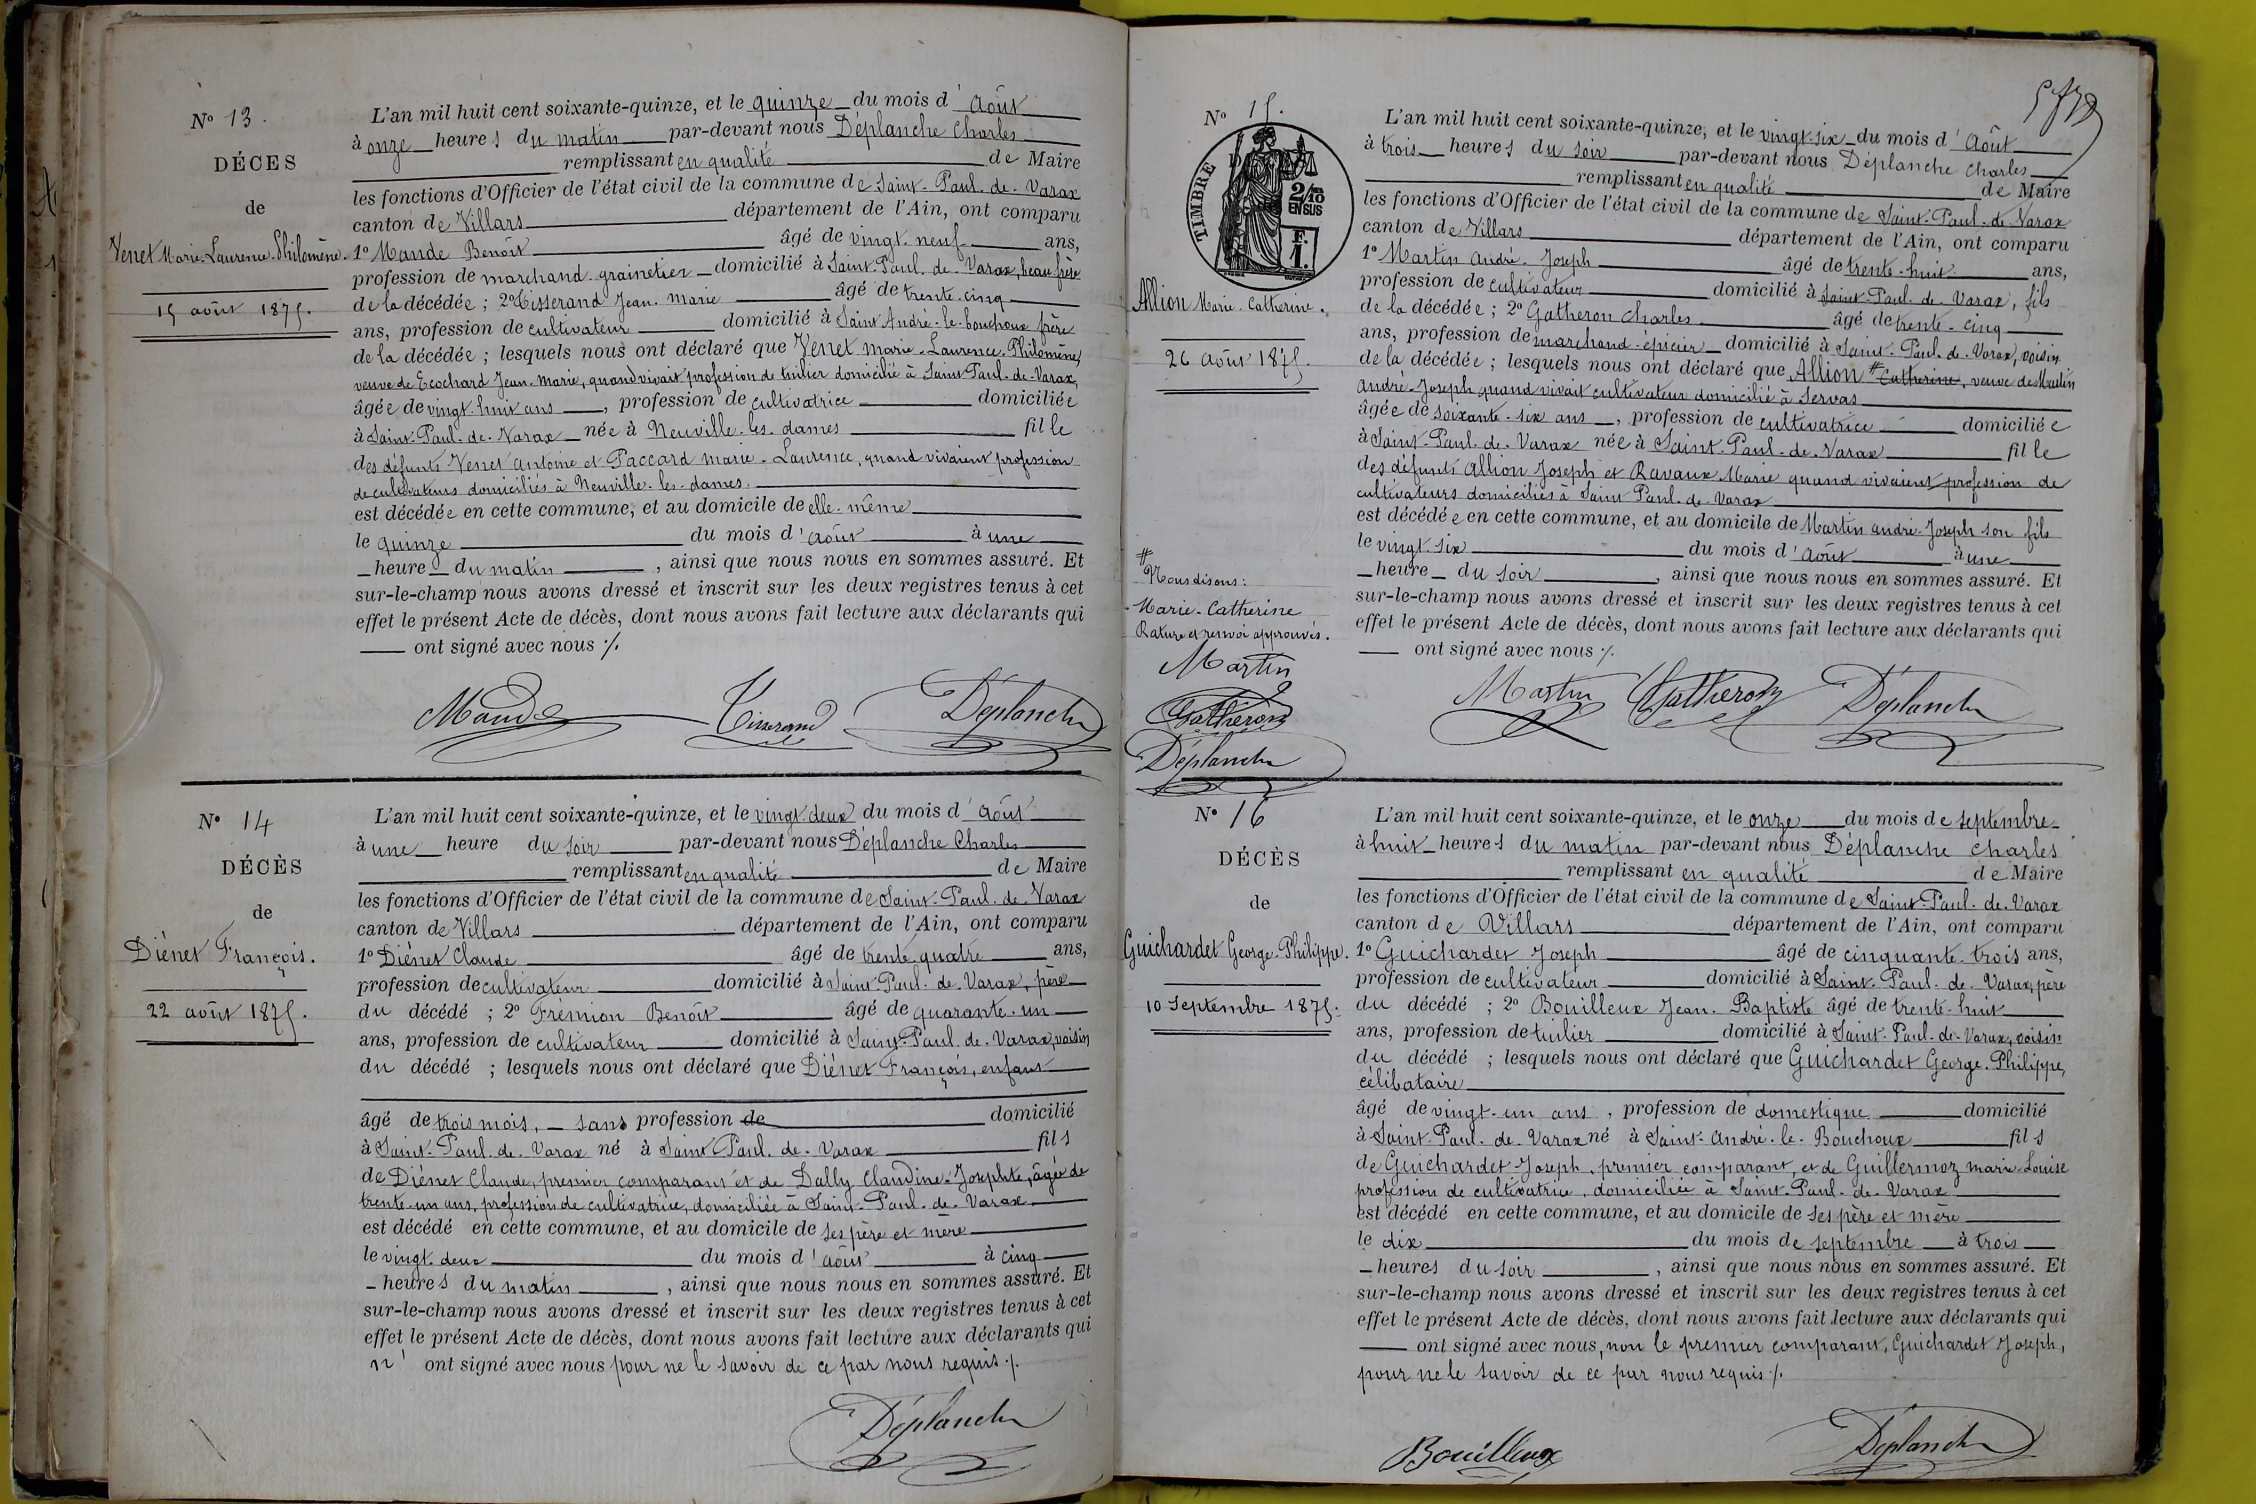 N° 13.
DÉCES
de
Venet Marie-Laurence-Philomène.
15 août 1875.
L'an mil huit cent soixante-quinze, et le quinze du mois d'Août
à onze heures du matin par-devant nous Déplanche Charles
remplissant en qualité de Maire
les fonctions d'Officier de l'état civil de la commune de Saint-Paul-de-Varax
canton de Villars département de l'Ain, ont comparu
1° Mande Benoît âgé de vingt-neuf ans,
profession de marchand-grainetier domicilié à Saint-Paul-de-Varax, beau frère
de la décédée ; 2° Tisserand Jean-Marie âgé de trente-cinq
ans, profession de cultivateur domicilié à Saint André-le-bouchoux frère
de la décédée ; lesquels nous ont déclaré que Venet Marie-Laurence-Philomène,
veuve de Ecochard Jean-Marie, quand vivait profession de tuilier domicilié à Saint Paul-de-Varax,
âgée de vingt-huit ans, profession de cultivatrice domiciliée
à Saint-Paul-de-Varax née à Neuville-les-dames fille
des défunts Venet Antoine et Paccard Marie-Laurence, quand vivaient profession
de cultivateurs domiciliés à Neuville-les-dames.
est décédée en cette commune, et au domicile de elle-même
le quinze du mois d'août à une
heure du matin, ainsi que nous nous en sommes assuré. Et
sur-le-champ nous avons dressé et inscrit sur les deux registres tenus à cet
effet le présent Acte de décès, dont nous avons fait lecture aux déclarants qui
ont signé avec nous ./.
Mande Tisserand Déplanche
N° 14
DÉCÈS
de
Diénet François.
22 août 1875.
L'an mil huit cent soixante-quinze, et le vingt-deux du mois d'Août
à une heure du soir par-devant nous Déplanche Charles
remplissant en qualité de Maire
les fonctions d'Officier de l'état civil de la commune de Saint-Paul-de-Varax
canton de Villars département de l'Ain, ont comparu
1° Diénet Claude âgé de trente-quatre ans,
profession de cultivateur domicilié à Saint Paul-de-Varax, père
du décédé ; 2° Frémion Benoît âgé de quarante-un
ans, profession de cultivateur domicilié à Saint-Paul-de-Varax, voisin
du décédé ; lesquels nous ont déclaré que Diénet François, enfant
âgé de trois mois, sans profession de domicilié
à Saint-Paul-de-Varax né à Saint Paul-de-Varax fils
de Diénet Claude, premier comparant et de Dally Claudine-Josephte, âgée de
trente-un ans, profession de cultivatrice, domiciliée à Saint-Paul-de-Varax
est décédé en cette commune, et au domicile de ses père et mère
le vingt-deux du mois d'août à cinq
heures du matin, ainsi que nous nous en sommes assuré. Et
sur-le-champ nous avons dressé et inscrit sur les deux registres tenus à cet
effet le présent Acte de décès, dont nous avons fait lecture aux déclarants qui
n'ont signé avec nous pour ne le savoir de ce par nous requis ./.
Déplanche
N° 15.
TIMBRE
2/10
EN SUS
F.
1.
Allion Marie-Catherine.
26 Août 1875.
# Nous disons :
Marie-Catherine
Rature et renvoi approuvés.
Martin
Gatheron
Déplanche
L'an mil huit cent soixante-quinze, et le vingt-six du mois d'Août
à trois heures du soir par-devant nous Déplanche Charles
remplissant en qualité de Maire
les fonctions d'Officier de l'état civil de la commune de Saint-Paul-de-Varax
canton de Villars département de l'Ain, ont comparu
1° Martin André-Joseph âgé de trente-huit ans,
profession de cultivateur domicilié à Saint-Paul-de-Varax, fils
de la décédée ; 2° Gatheron Charles âgé de trente-cinq
ans, profession de marchand-épicier domicilié à Saint-Paul-de-Varax, voisin
de la décédée ; lesquels nous ont déclaré que Allion # Catherine, veuve de Martin
André-Joseph quand vivait cultivateur domicilié à Servas
âgée de soixante-six ans, profession de cultivatrice domiciliée
à Saint-Paul-de-Varax née à Saint-Paul-de-Varax fille
des défunts Allion Joseph et Ravaux Marie quand vivaient profession de
cultivateurs domiciliés à Saint Paul-de-Varax
est décédée en cette commune, et au domicile de Martin André-Joseph son fils
le vingt-six du mois d'août à une
heure du soir, ainsi que nous nous en sommes assuré. Et
sur-le-champ nous avons dressé et inscrit sur les deux registres tenus à cet
effet le présent Acte de décès, dont nous avons fait lecture aux déclarants qui
ont signé avec nous ./.
Martin Gatheron Déplanche
N° 16
DÉCÈS
de
Guichardet George-Philippe.
10 Septembre 1875.
L'an mil huit cent soixante-quinze, et le onze du mois de septembre
à huit heures du matin par-devant nous Déplanche Charles
remplissant en qualité de Maire
les fonctions d'Officier de l'état civil de la commune de Saint-Paul-de-Varax
canton de Villars département de l'Ain, ont comparu
1° Guichardet Joseph âgé de cinquante-trois ans,
profession de cultivateur domicilié à Saint-Paul-de-Varax, père
du décédé ; 2° Bouilleux Jean-Baptiste âgé de trente-huit
ans, profession de tuilier domicilié à Saint-Paul-de-Varax, voisin
du décédé ; lesquels nous ont déclaré que Guichardet George-Philippe,
célibataire
âgé de vingt-un ans, profession de domestique domicilié
à Saint-Paul-de-Varax né à Saint-André-le-Bouchoux fils
de Guichardet Joseph, premier comparant, et de Guillermoz Marie-Louise
profession de cultivatrice, domiciliée à Saint-Paul-de-Varax
est décédé en cette commune, et au domicile de ses père et mère
le dix du mois de septembre à trois
heures du soir, ainsi que nous nous en sommes assuré. Et
sur-le-champ nous avons dressé et inscrit sur les deux registres tenus à cet
effet le présent Acte de décès, dont nous avons fait lecture aux déclarants qui
ont signé avec nous, non le premier comparant, Guichardet Joseph,
pour ne le savoir de ce par nous requis ./.
Bouilleux Déplanche